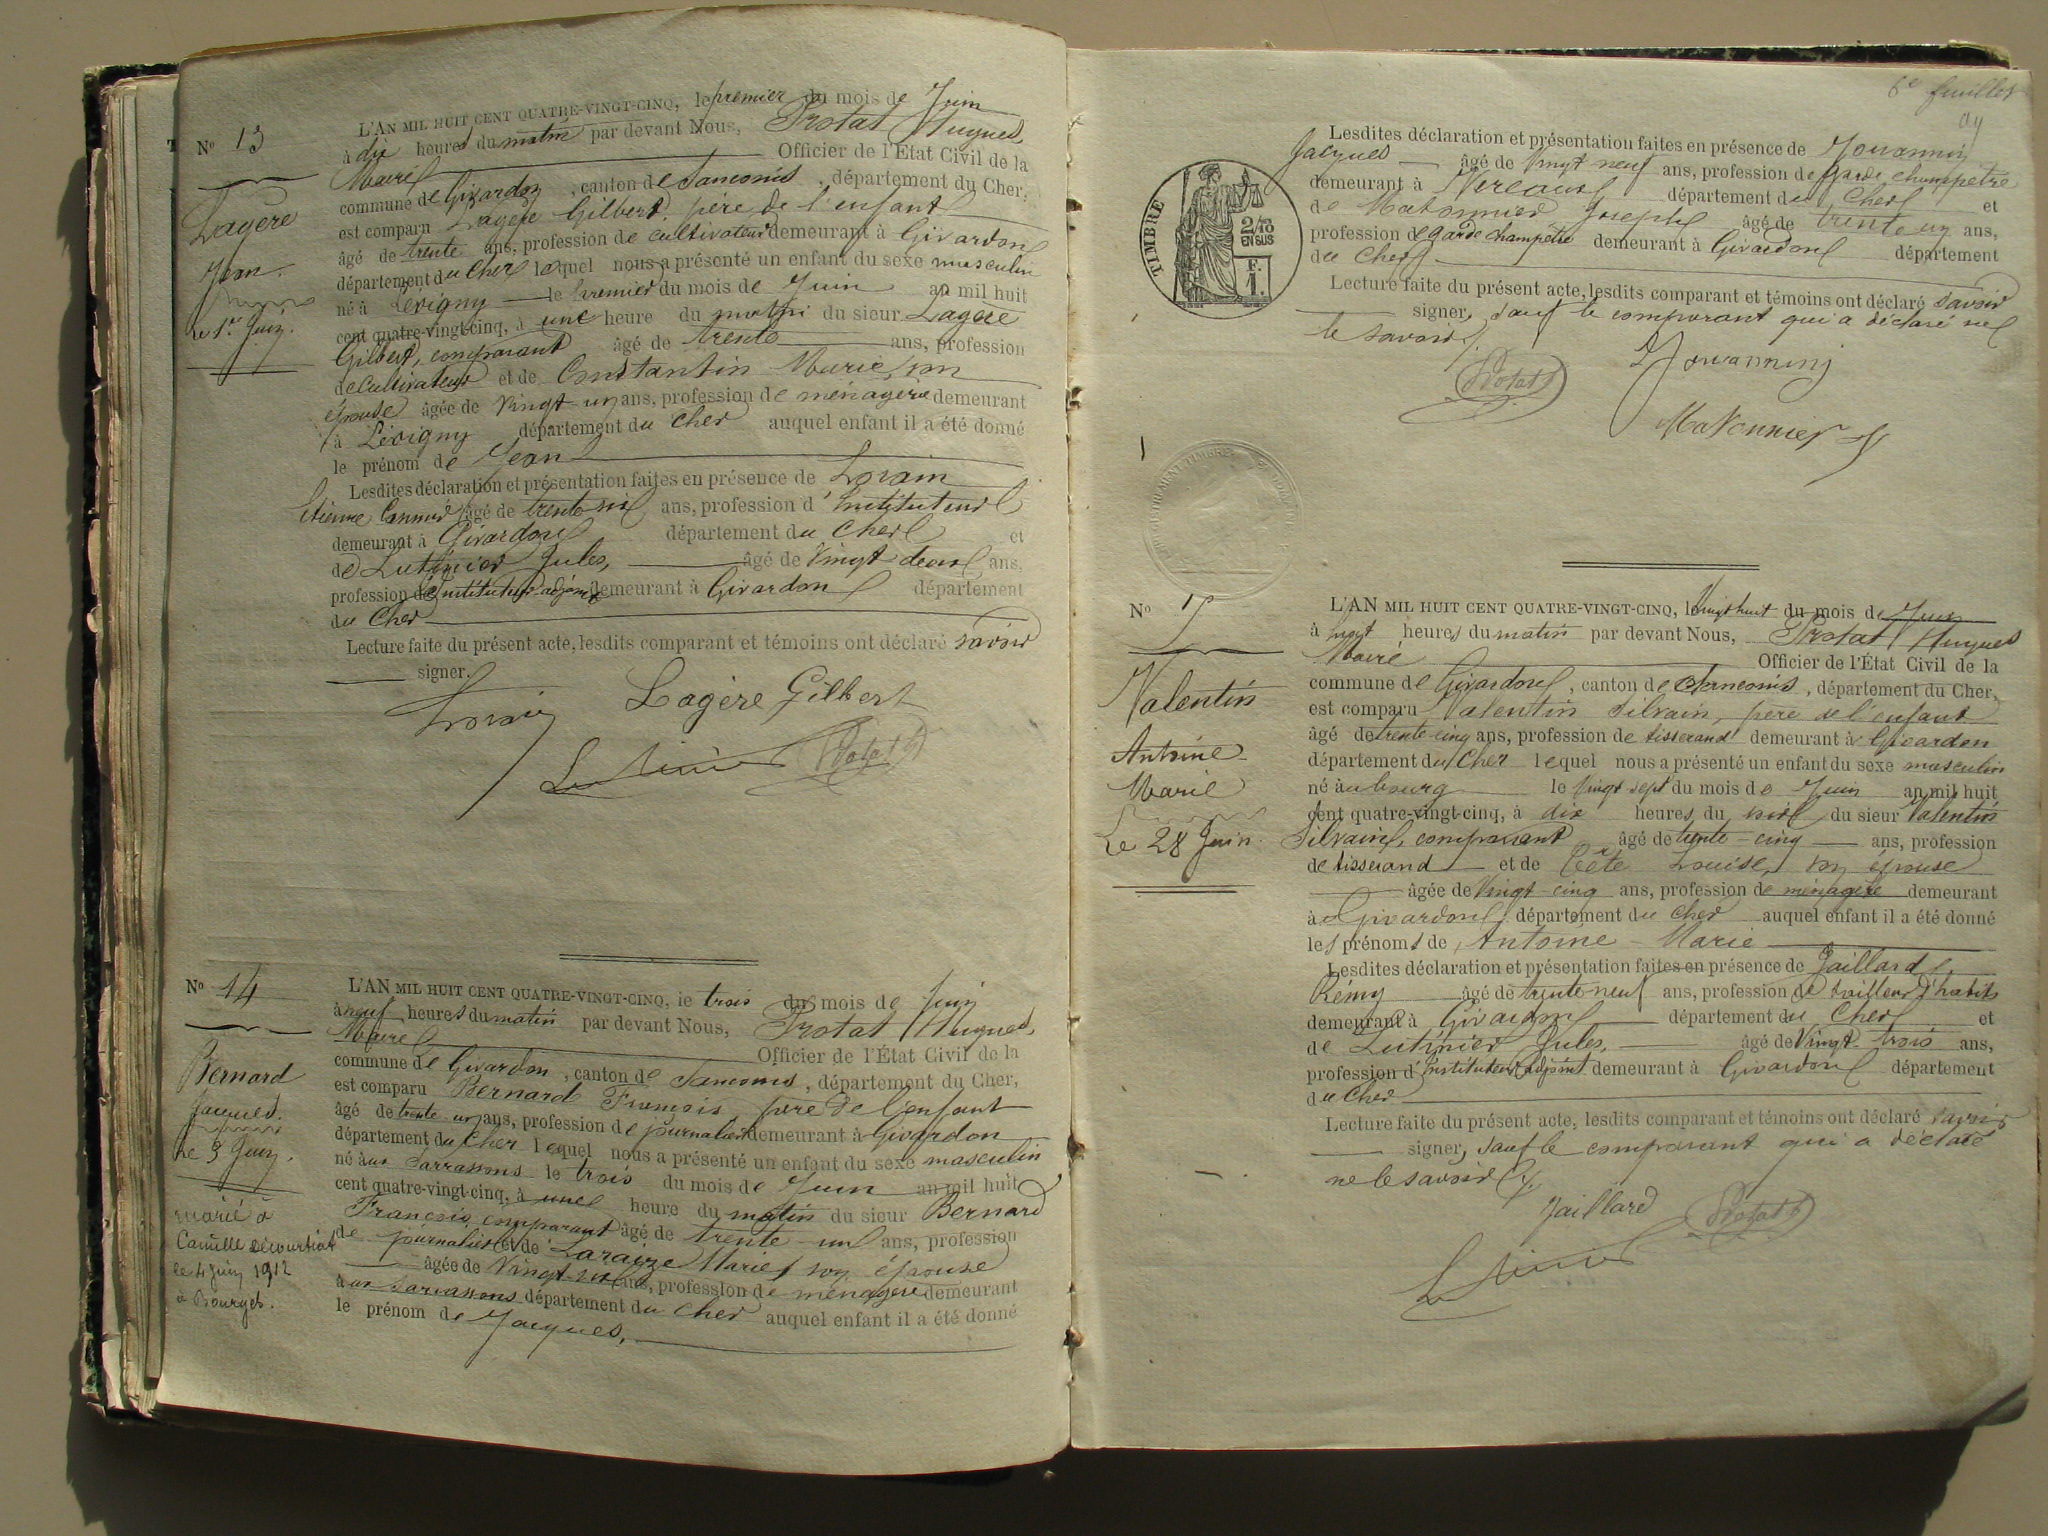 N° 13
Lagère
Jean.
Le 1er Juin.
L'AN MIL HUIT CENT QUATRE-VINGT-CINQ, le premier du mois de Juin
à dix heures du matin par devant Nous, Protat Hugues,
Maire Officier de l'État Civil de la
commune de Givardon, canton de Sancoins, département du Cher,
est comparu Lagère Gilbert, père de l'enfant
âgé de trente ans, profession de cultivateur demeurant à Givardon
département du Cher lequel nous a présenté un enfant du sexe masculin
né à Lévigny le premier du mois de Juin an mil huit
cent quatre-vingt-cinq, à une heure du matin du sieur Lagère
Gilbert, comparant âgé de trente ans, profession
de cultivateur et de Constantin Marie, son
épouse âgée de vingt un ans, profession de ménagère demeurant
à Lévigny département du Cher auquel enfant il a été donné
le prénom de Jean
Lesdites déclaration et présentation faites en présence de Lorain
Etienne âgé de trente six ans, profession d'Instituteur
demeurant à Givardon département du Cher et
de Lutinier Jules, âgé de vingt deux ans,
profession d'Instituteur adjoint demeurant à Givardon département
du Cher
Lecture faite du présent acte, lesdits comparant et témoins ont déclaré savoir
signer.
Lorain Lagère Gilbert
Lutinier Protat h
N° 14
Bernard
Jacques.
Le 3 Juin.
marié à
Camille Décourtiat
le 4 Juin 1912
à Bourges.
L'AN MIL HUIT CENT QUATRE-VINGT-CINQ, le trois du mois de Juin
à neuf heures du matin par devant Nous, Protat Hugues,
Maire Officier de l'État Civil de la
commune de Givardon, canton de Sancoins, département du Cher,
est comparu Bernard François, père de l'enfant
âgé de trente un ans, profession de journalier demeurant à Givardon
département du Cher lequel nous a présenté un enfant du sexe masculin
né aux Sarrassons le trois du mois de Juin an mil huit
cent quatre-vingt-cinq, à une heure du matin du sieur Bernard
François, comparant âgé de trente-un ans, profession
de journalier et de Laraize Marie, son épouse
âgée de vingt-six ans, profession de ménagère demeurant
aux Sarrassons département du Cher auquel enfant il a été donné
le prénom de Jacques,
6e feuillet
Lesdites déclaration et présentation faites en présence de Jouannin
Jacques âgé de vingt neuf ans, profession de garde champêtre
demeurant à Vereaux département du Cher et
de Matonnier Joseph âgé de trente un ans,
profession de garde champêtre demeurant à Givardon département
du Cher
Lecture faite du présent acte, lesdits comparant et témoins ont déclaré savoir
signer, sauf le comparant qui a déclaré ne
le savoir.
Protat h Jouannin
Matonnier J
TIMBRE
2/10
EN SUS
F.
1.
N°
Valentin
Antoine
Marie
Le 28 Juin.
L'AN MIL HUIT CENT QUATRE-VINGT-CINQ, le vingt huit du mois de Juin
à huit heures du matin par devant Nous, Protat Hugues
Maire Officier de l'État Civil de la
commune de Givardon, canton de Sancoins, département du Cher,
est comparu Valentin Silvain, père de l'enfant
âgé de trente-cinq ans, profession de tisserand demeurant à Givardon
département du Cher lequel nous a présenté un enfant du sexe masculin
né au bourg le vingt sept du mois de Juin an mil huit
cent quatre-vingt-cinq, à dix heures du soir du sieur Valentin
Silvain, comparant âgé de trente-cinq ans, profession
de tisserand et de Tête Louise, son épouse
âgée de vingt-cinq ans, profession de ménagère demeurant
à Givardon, département du Cher auquel enfant il a été donné
les prénoms de Antoine-Marie
Lesdites déclaration et présentation faites en présence de Jaillard
Rémy âgé de trente neuf ans, profession de tailleur d'habits
demeurant à Givardon département du Cher et
de Lutinier Jules, âgé de vingt-trois ans,
profession d'Instituteur Adjoint demeurant à Givardon département
du Cher
Lecture faite du présent acte, lesdits comparant et témoins ont déclaré savoir
signer, sauf le comparant qui a déclaré
ne le savoir.
Jaillard Protat h
Lutinier